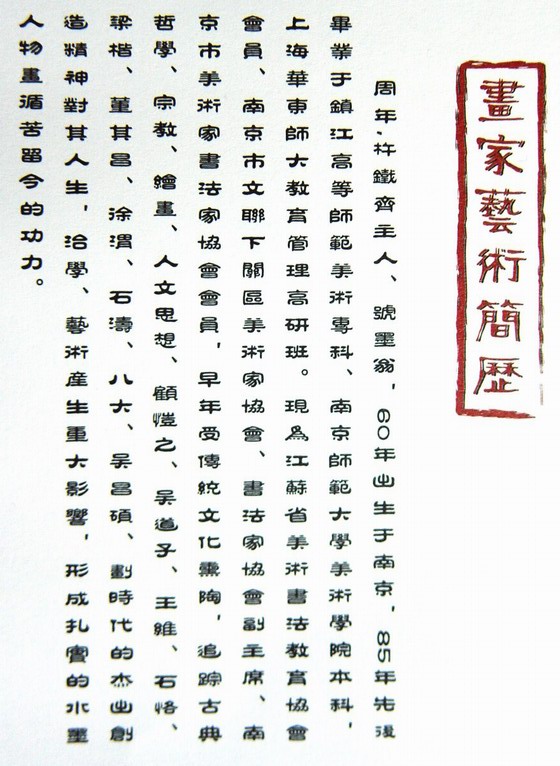 畫家藝術簡歷
周年·杵鐵齊主人、號墨翁，60年出生于南京，85年先後
畢業于鎮江高等師範美術專科、南京師範大學美術學院本科，
上海華東師大教育管理高研班。現為江蘇省美術書法教育協會
會員、南京市文聯下關區美術家協會、書法家協會副主席、南
京市美術家書法家協會會員，早年受傳統文化熏陶，追踪古典
哲學、宗教、繪畫、人文思想、顧愷之、吴道子、王維、石恪、
梁楷、董其昌、徐渭、石濤、八大、吴昌碩，劃時代的杰出創
造精神對其人生，治學、藝術産生重大影響，形成扎實的水墨
人物畫循苦習今的功力。